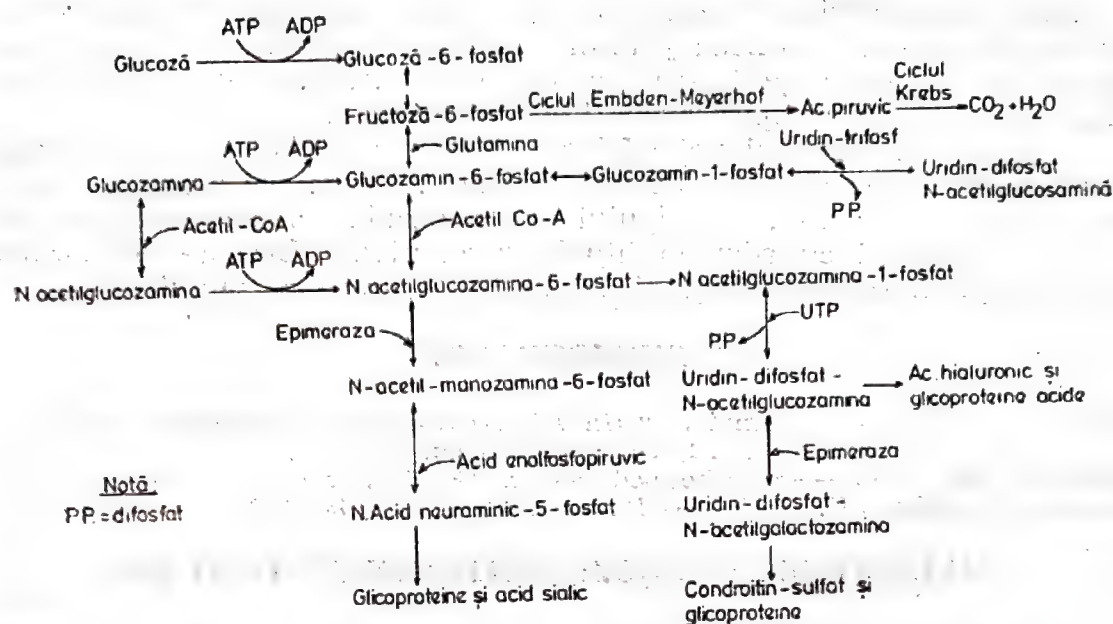 ATP ADP
Glucoză Glucoză-6-fosfat
Ciclul
Krebs
Fructoză-6-fosfat Ciclul Embden-Meyerhof Ac. piruvic CO2+H2O
Glutamina Uridin-trifosf
ATP ADP
Glucozamina Glucozamin-6-fosfat Glucozamin-1-fosfat Uridin-difosfat
N-acetilglucosamină
P.P.
Acetil-CoA Acetil Co-A
ATP ADP
N acetilglucozamina N. acetilglucozamina-6-fosfat N acetilglucozamina-1-fosfat
Epimeraza P.P. UTP
N-acetil-manozamina-6-fosfat Uridin-difosfat- Ac. hialuronic și
N-acetilglucozamina glicoproteine acide
Acid enolfosfopiruvic Epimeraza
Notă.
P.P.=difosfat
N.Acid neuraminic-5-fosfat Uridin-difosfat-
N-acetilgalactozamina
Glicoproteine și acid sialic Condroitin-sulfat și
glicoproteine